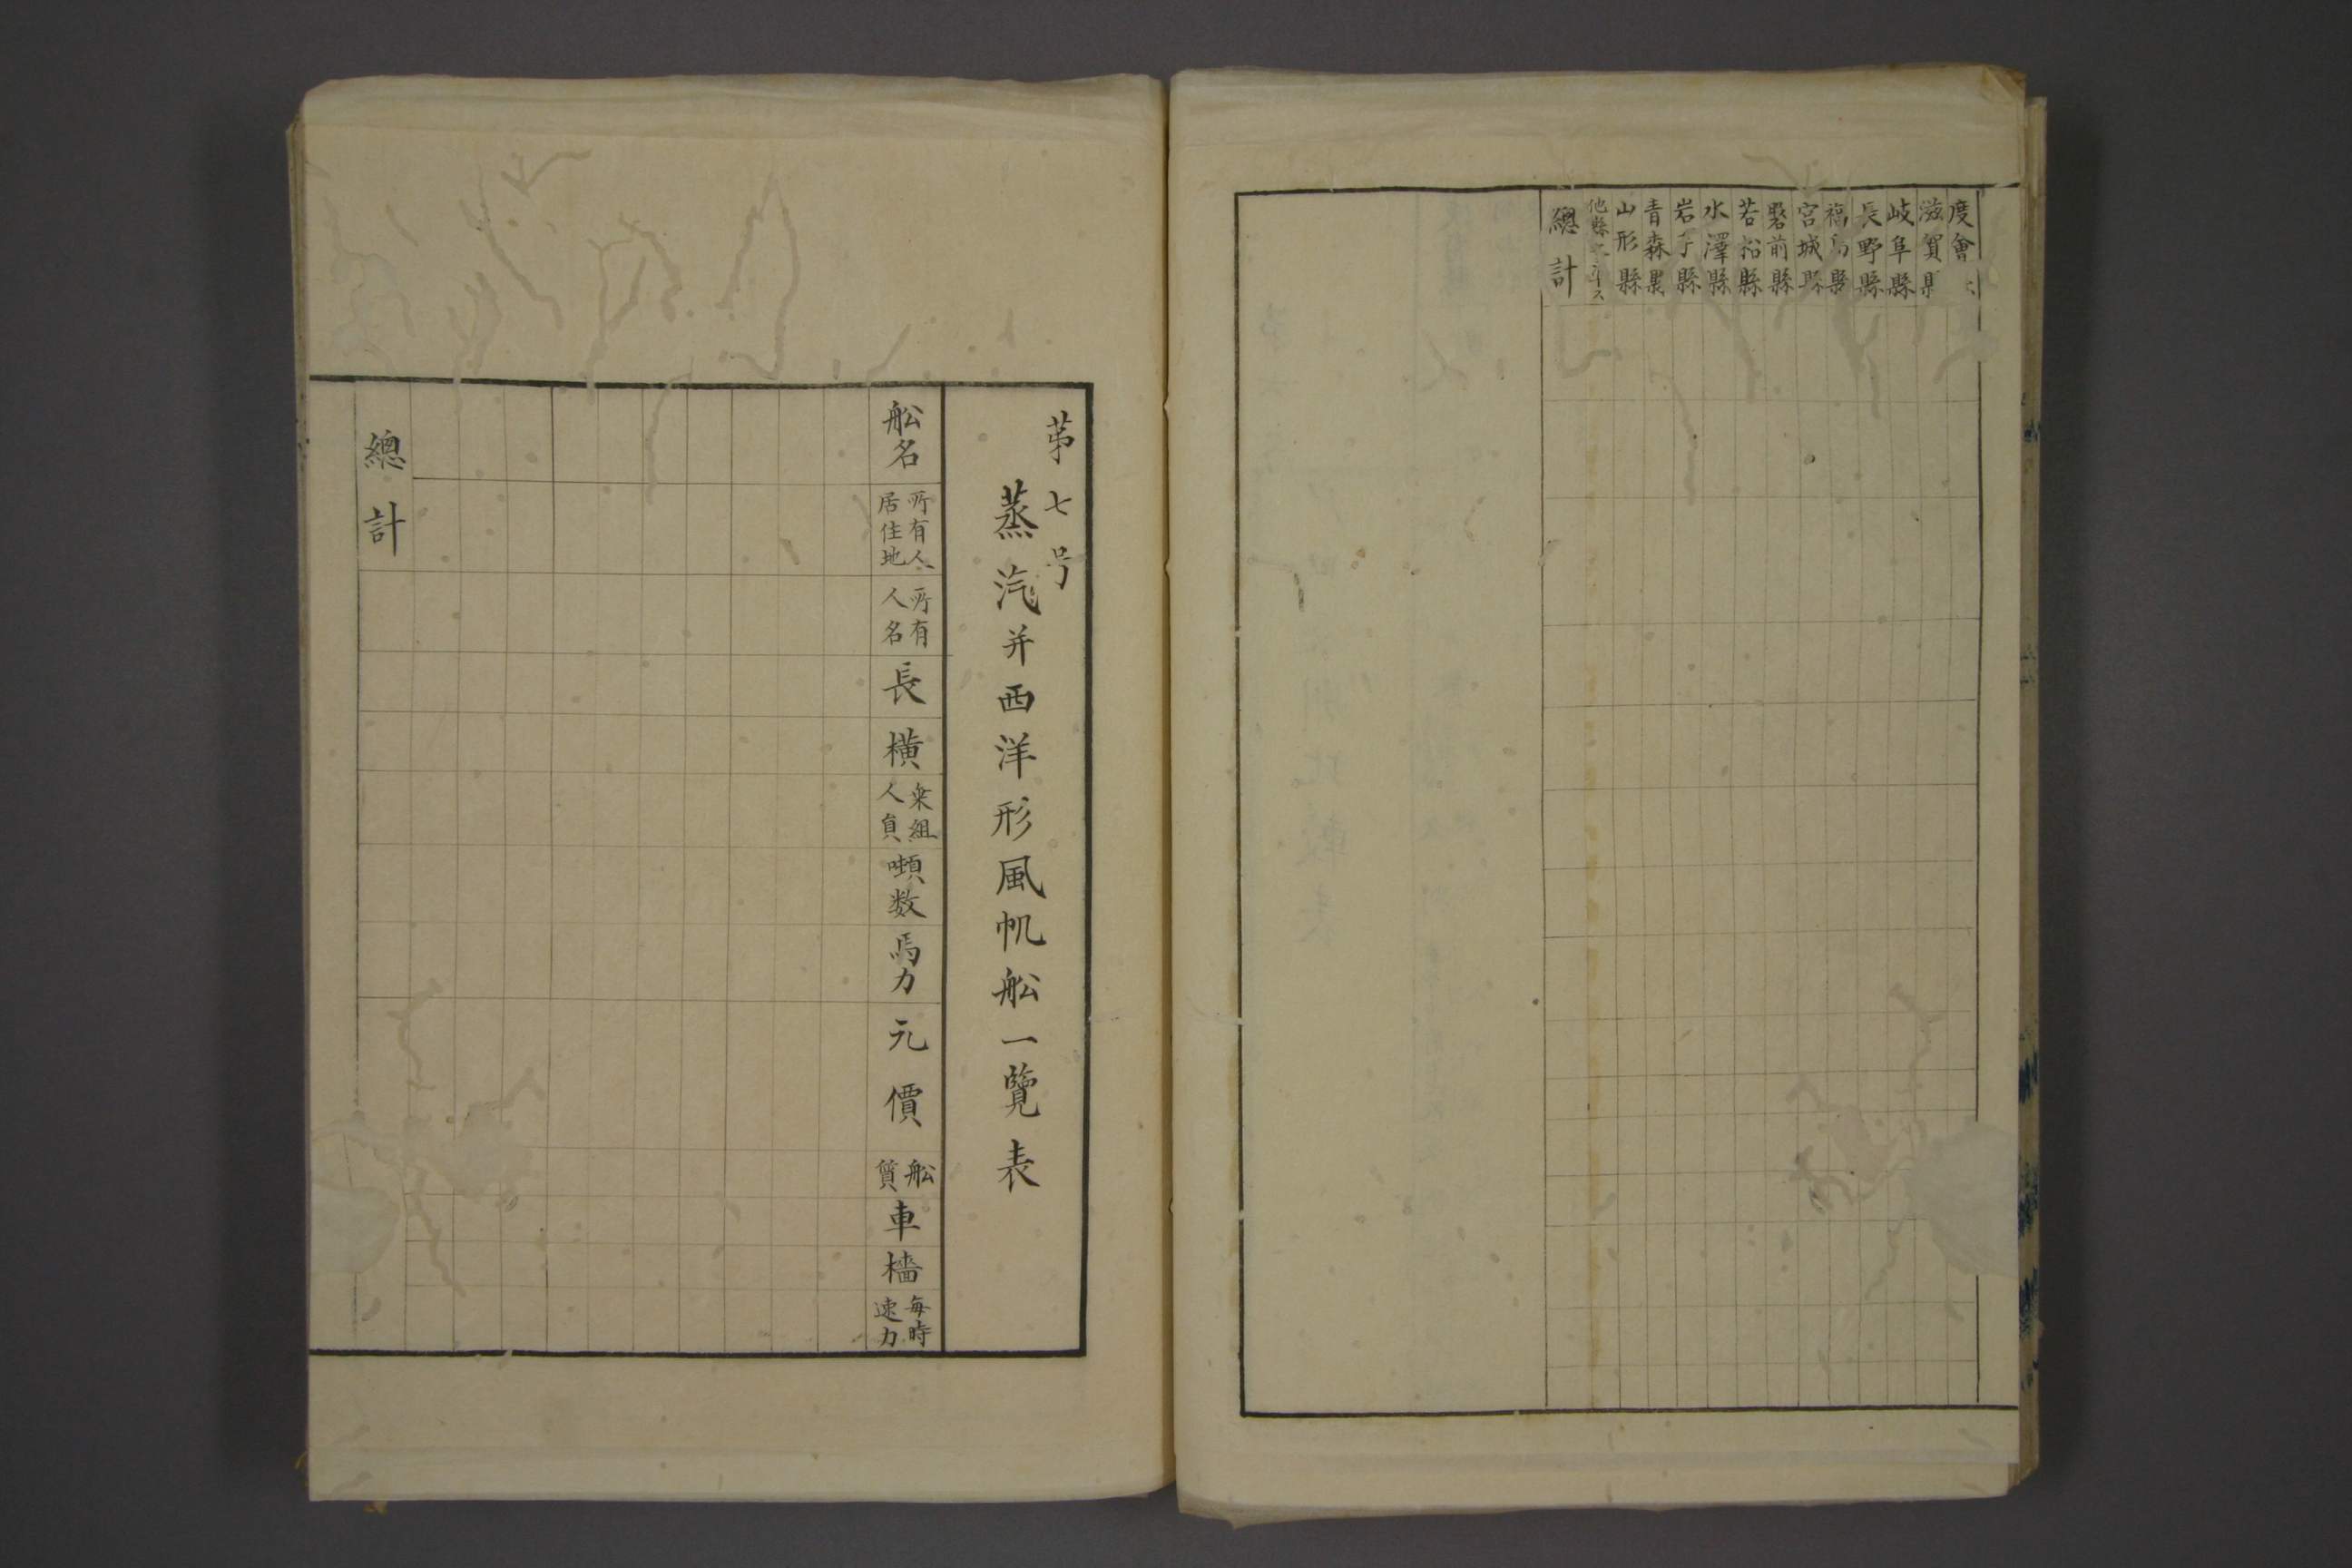 度會
滋賀縣
岐阜縣
長野縣
福島縣
宮城縣
磐前縣
若松縣
水澤縣
岩手縣
青森縣
山形縣
他縣之準ス
總計
第七号
蒸汽并西洋形風帆舩一覽表
舩名
所有人居住地
所有人名
長
橫
乗組人員
噸数
馬力
元價
舩質
車
檣
毎時速力
總計